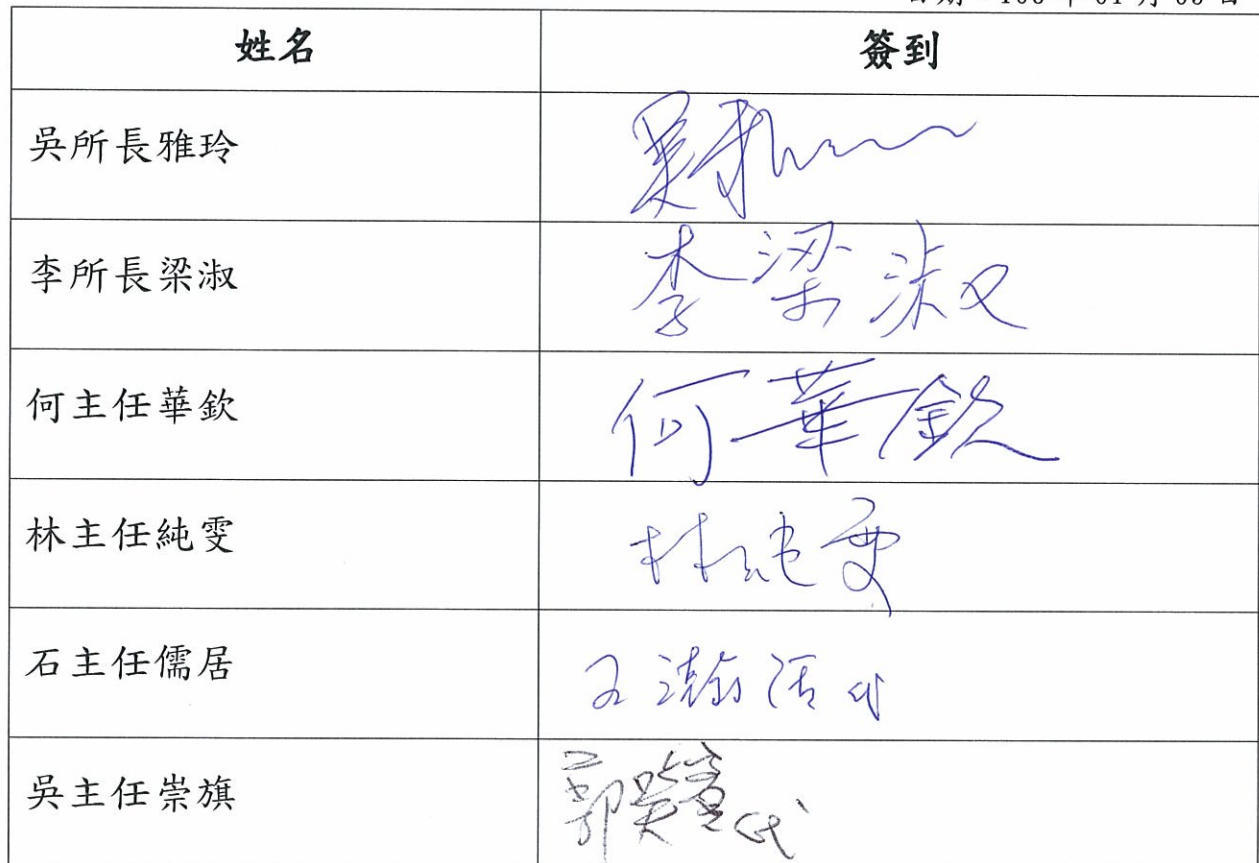 姓名 簽到
吳所長雅玲
李所長梁淑 李梁淑
何主任華欽 何華欽
林主任純雯 林純雯
石主任儒居
吳主任崇旗